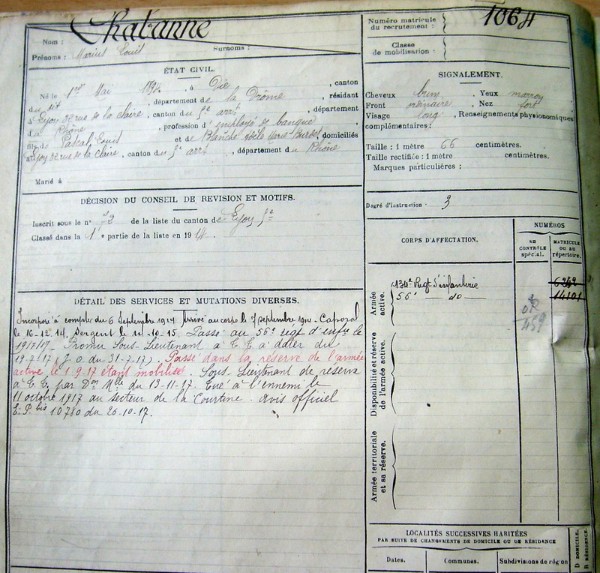 Chabanne
Nom :
Prénoms : Marius Louis Surnoms :
Numéro matricule
du recrutement : 1064
Classe
de mobilisation :
ÉTAT CIVIL.
Né le 1er Mai, à Die, canton
du dit, département de la Drôme, résidant
à Lyon rue de la Claire, canton du 5e arrt, département
du Rhône, profession d'employé de banque
fils de et de domiciliés
à Lyon rue de la Claire, canton du 5e arrt, département du Rhône
Marié à
SIGNALEMENT.
Cheveux brun, Yeux marron
Front ordinaire, Nez fort
Visage long, Renseignements physionomiques
complémentaires :
Taille : 1 mètre 66 centimètres.
Taille rectifiée : 1 mètre centimètres.
Marques particulières :
Degré d'instruction : 3
DÉCISION DU CONSEIL DE REVISION ET MOTIFS.
Inscrit sous le no 73 de la liste du canton de Lyon 5e
Classé dans la 1e partie de la liste en 1914
CORPS D'AFFECTATION.
NUMÉROS
AU
CONTRÔLE
SPÉCIAL.
MATRICULE
OU AU
RÉPERTOIRE.
Armée
active.
134e Regt d'infanterie
56e do
Disponibilité et réserve
de l'armée active.
Armée territoriale
et sa réserve.
DÉTAIL DES SERVICES ET MUTATIONS DIVERSES.
Incorporé à compter du 6 Septembre 1914 arrivé au corps le 7 septembre 1914 - Caporal
le 16.12.14, Sergent le 11.10.15. Passé au 56e régt d'infie le
19/7/17. Promu Sous Lieutenant à T.T. à dater du
19.7.17 (J.O. du 31.7.17). Passé dans la réserve de l'armée
active le 1.9.17 étant mobilisé. Sous Lieutenant de réserve
à T.T. par Don Mlle du 13.11.17. Tué à l'ennemi le
11 octobre 1917 au secteur de la Courtine - Avis officiel
E.P. bis 10780 du 26.10.17.
LOCALITÉS SUCCESSIVES HABITÉES
PAR SUITE DE CHANGEMENTS DE DOMICILE OU DE RÉSIDENCE
Dates. Communes. Subdivisions de région
D. domicile.
R. résidence.